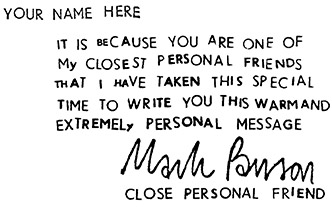 YOUR NAME HERE
IT IS BECAUSE YOU ARE ONE OF
MY CLOSEST PERSONAL FRIENDS
THAT I HAVE TAKEN THIS SPECIAL
TIME TO WRITE YOU THIS WARM AND
EXTREMELY PERSONAL MESSAGE
Mark
CLOSE PERSONAL FRIEND